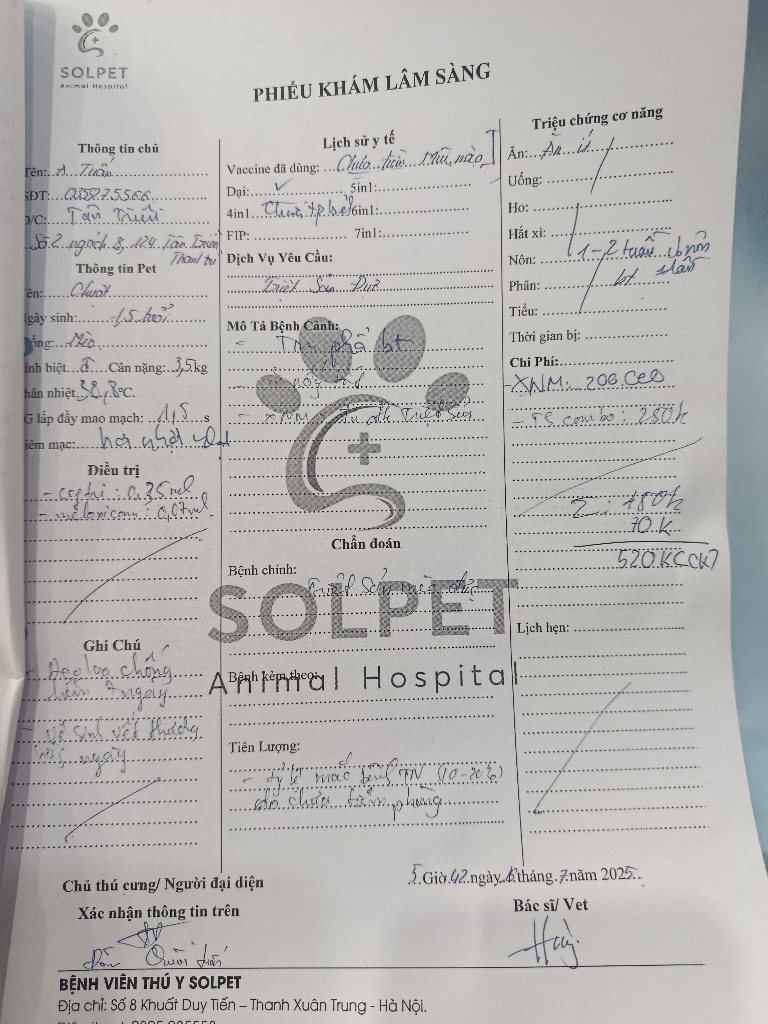 SOLPET
Animal Hospital
PHIẾU KHÁM LÂM SÀNG
Thông tin chủ
Tên: A. Tuấn
SĐT:
Đ/C: Tân Triều
Số 2 ngách 8, 124 Tân Triều
Thanh trì
Thông tin Pet
Tên: Chuột
Ngày sinh: 1,5 tuổi
Giống: Mèo
Cân nặng: 3,5 kg
Thân nhiệt 38,8 °C.
lấp đầy mao mạch: 1,5 s
Niêm mạc: hơi nhợt
Điều trị
- ceftri: 0,35 ml
- meloxicam: 0,07 ml
Ghi Chú
- Đeo loa chống
liếm 7 ngày
- Vệ sinh vết thương
ngày
Lịch sử y tế
Vaccine đã dùng: Chưa tiêm mũi nào
Dại: ✓ 5in1:
4in1 6in1:
FIP: 7in1:
Dịch Vụ Yêu Cầu:
Triệt Sản Đực
Mô Tả Bệnh Cảnh:
- Tim phổi bt
- XNM: đủ đk Triệt Sản
Chẩn đoán
Bệnh chính:
Triệt Sản mèo đực
SOLPET
Animal Hospital
Bệnh kèm theo:
Tiên Lượng:
- tỷ lệ mắc bệnh TN (10-20%)
do chưa tiêm phòng
Triệu chứng cơ năng
Ăn: Ăn ít
Uống:
Ho:
Hắt xì:
Nôn: 1-2 tuần có nôn
Phân: bt
Tiểu:
Thời gian bị:
Chi Phí:
- XNM: 200
- TS combo: 280k
Σ: 480k
70k
520K (CK)
Lịch hẹn:
Chủ thú cưng/ Người đại diện
Xác nhận thông tin trên
5 Giờ 42 ngày tháng 7 năm 2025
Bác sĩ/ Vet
Huy
BỆNH VIÊN THÚ Y SOLPET
Địa chỉ: Số 8 Khuất Duy Tiến – Thanh Xuân Trung - Hà Nội.